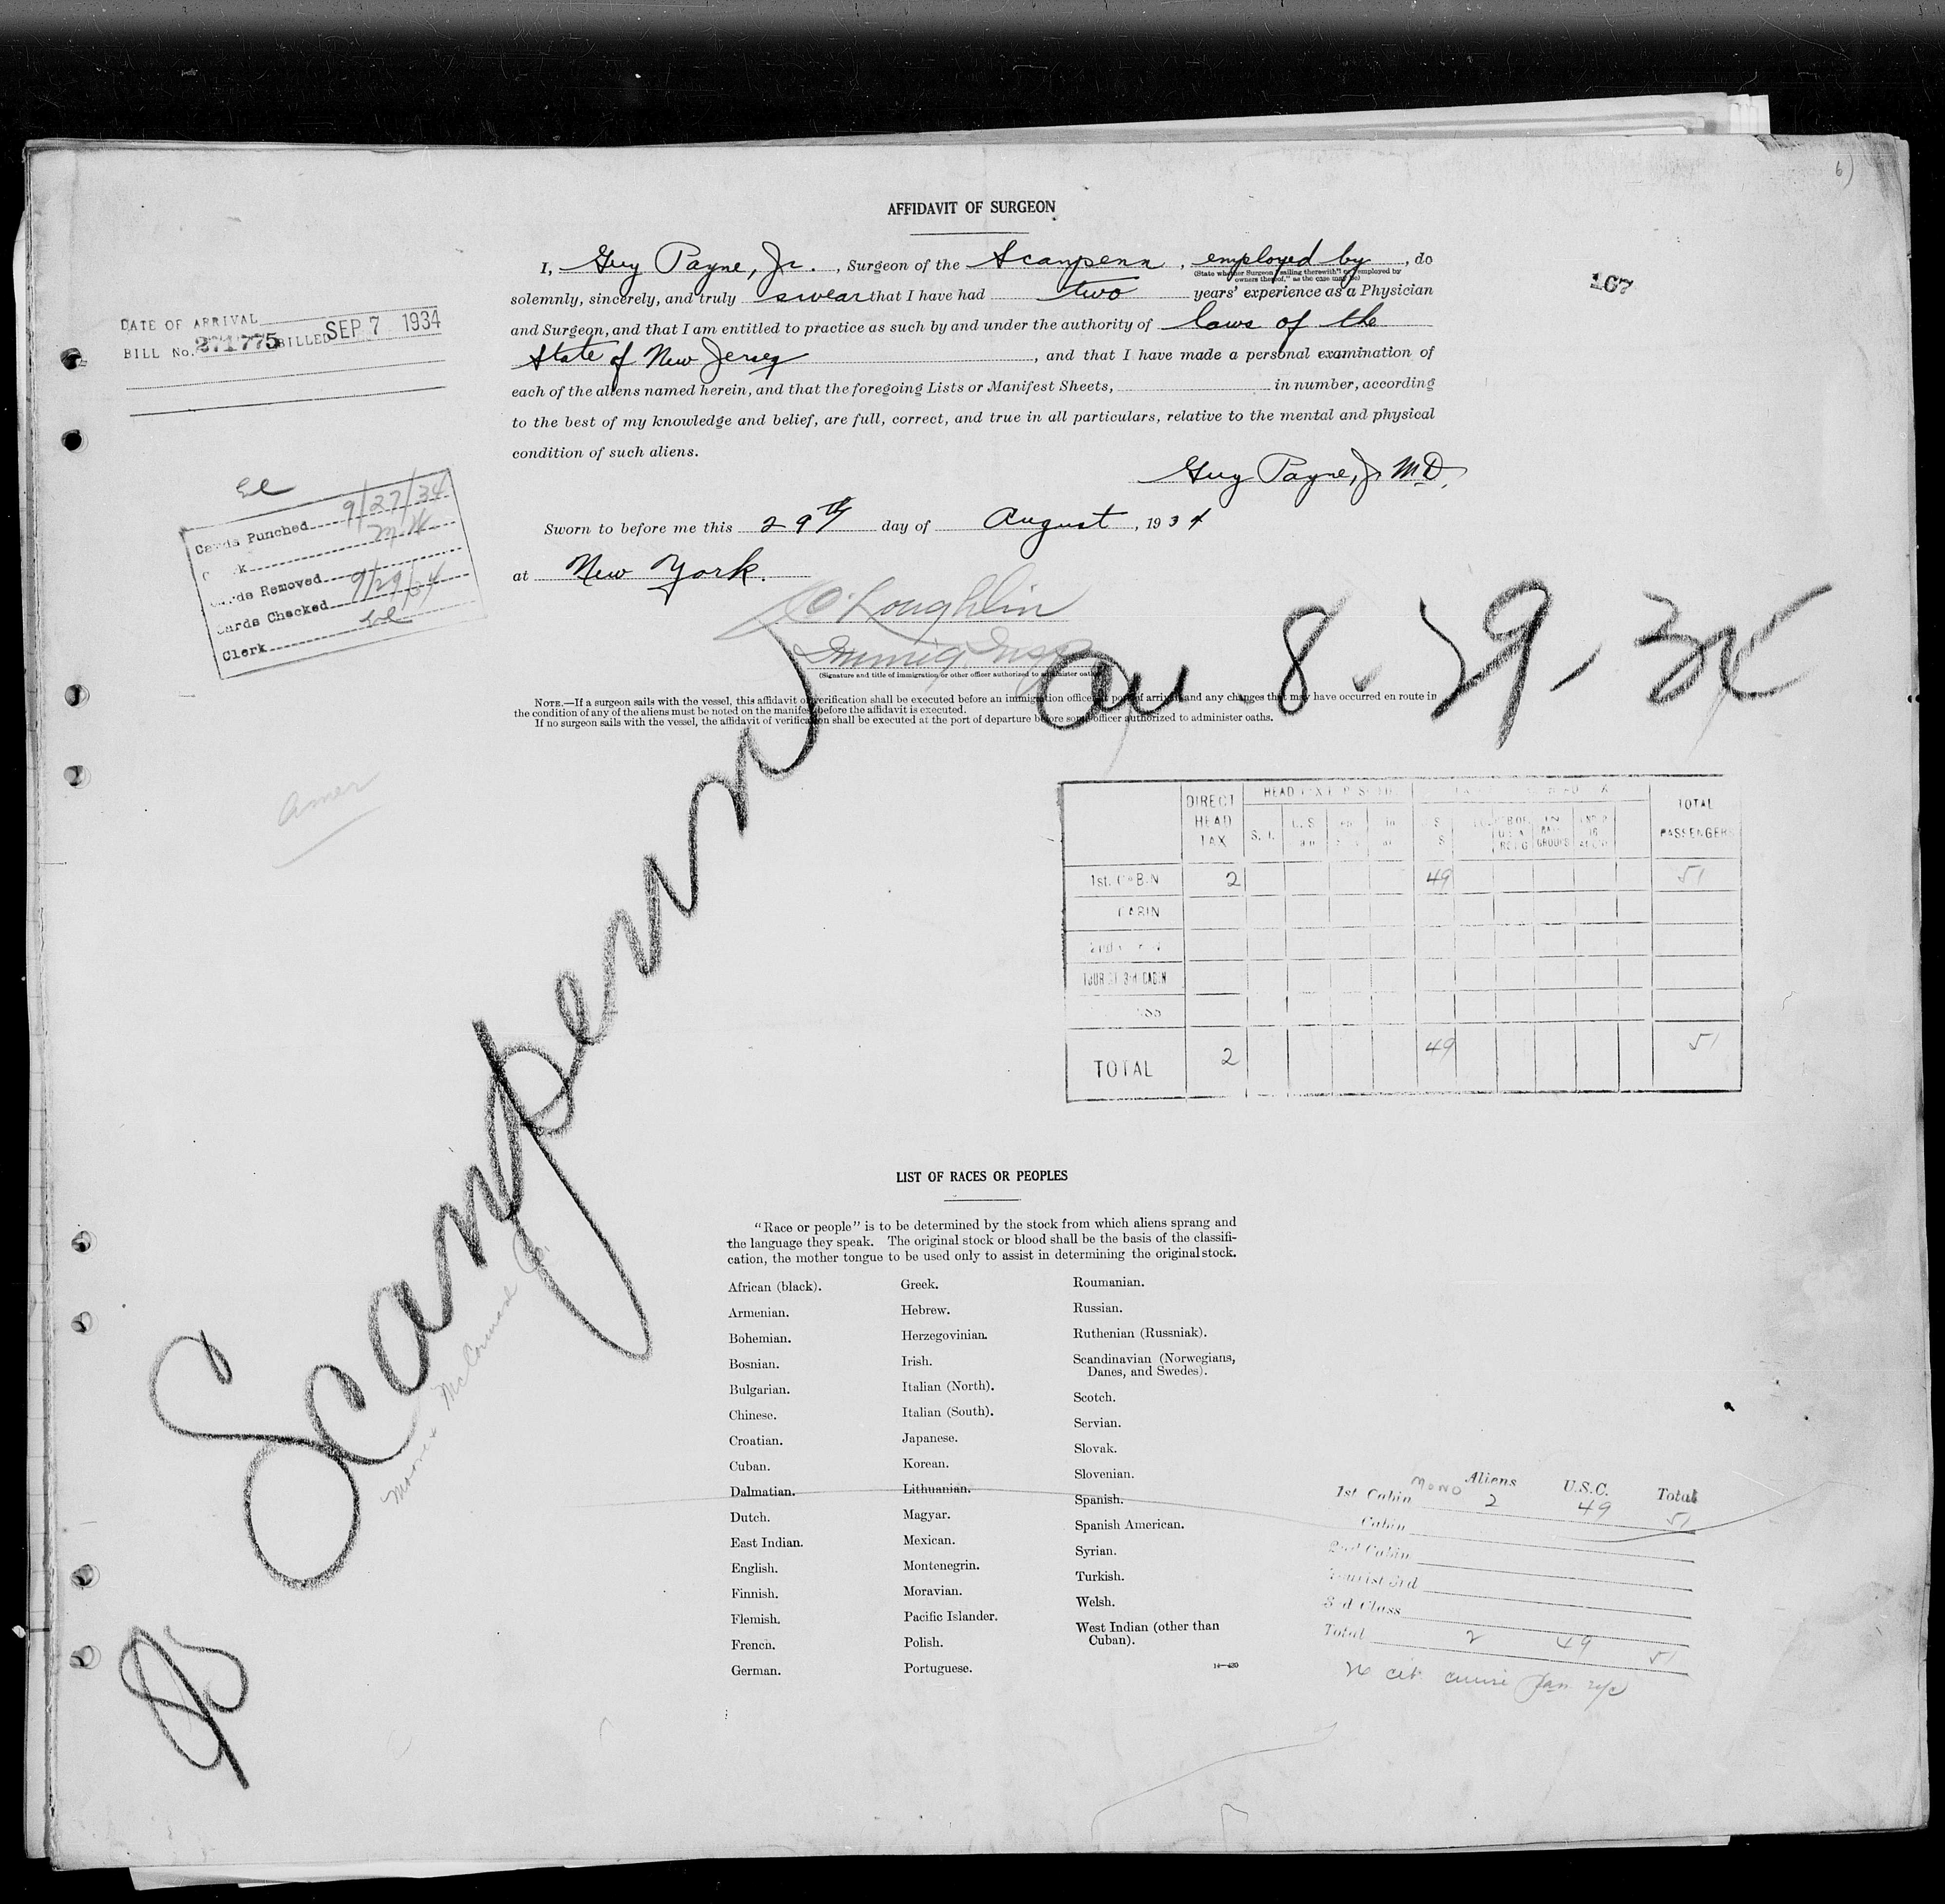 6)
AFFIDAVIT OF SURGEON
I, Guy Payne, Jr. , Surgeon of the Scanpenn , employed by , do
(State whether Surgeon "sailing therewith" or "employed by
owners thereof," as the case may be)
solemnly, sincerely, and truly swear that I have had two years' experience as a Physician
and Surgeon, and that I am entitled to practice as such by and under the authority of laws of the
State of New Jersey , and that I have made a personal examination of
each of the aliens named herein, and that the foregoing Lists or Manifest Sheets, in number, according
to the best of my knowledge and belief, are full, correct, and true in all particulars, relative to the mental and physical
condition of such aliens.
Guy Payne, Jr M.D.
Sworn to before me this 29th day of August , 1934
at New York.
O'Loughlin
Immig Insp
(Signature and title of immigration or other officer authorized to administer oaths)
NOTE.—If a surgeon sails with the vessel, this affidavit of verification shall be executed before an immigration officer at port of arrival and any changes that may have occurred en route in
the condition of any of the aliens must be noted on the manifest before the affidavit is executed.
If no surgeon sails with the vessel, the affidavit of verification shall be executed at the port of departure before some officer authorized to administer oaths.
167
DATE OF ARRIVAL
BILL No. 271775 BILLED SEP 7 1934
Cards Punched 9/27/34
Cards Removed
Cards Checked 9/29/34
Clerk
amer
8.29.34
Scanpenn
Moore & McCormack Co.
DIRECT HEAD TAX
TOTAL PASSENGERS
1st. CABIN 2 49 51
CABIN
TOURIST 3rd CABIN
TOTAL 2 49 51
LIST OF RACES OR PEOPLES
"Race or people" is to be determined by the stock from which aliens sprang and
the language they speak. The original stock or blood shall be the basis of the classifi-
cation, the mother tongue to be used only to assist in determining the original stock.
African (black).
Armenian.
Bohemian.
Bosnian.
Bulgarian.
Chinese.
Croatian.
Cuban.
Dalmatian.
Dutch.
East Indian.
English.
Finnish.
Flemish.
French.
German.
Greek.
Hebrew.
Herzegovinian.
Irish.
Italian (North).
Italian (South).
Japanese.
Korean.
Lithuanian.
Magyar.
Mexican.
Montenegrin.
Moravian.
Pacific Islander.
Polish.
Portuguese.
Roumanian.
Russian.
Ruthenian (Russniak).
Scandinavian (Norwegians,
Danes, and Swedes).
Scotch.
Servian.
Slovak.
Slovenian.
Spanish.
Spanish American.
Syrian.
Turkish.
Welsh.
West Indian (other than
Cuban).
14—420
Aliens U.S.C. Total
1st Cabin 2 49 51
Cabin
2nd Cabin
Tourist 3rd
3rd Class
Total 2 49 51